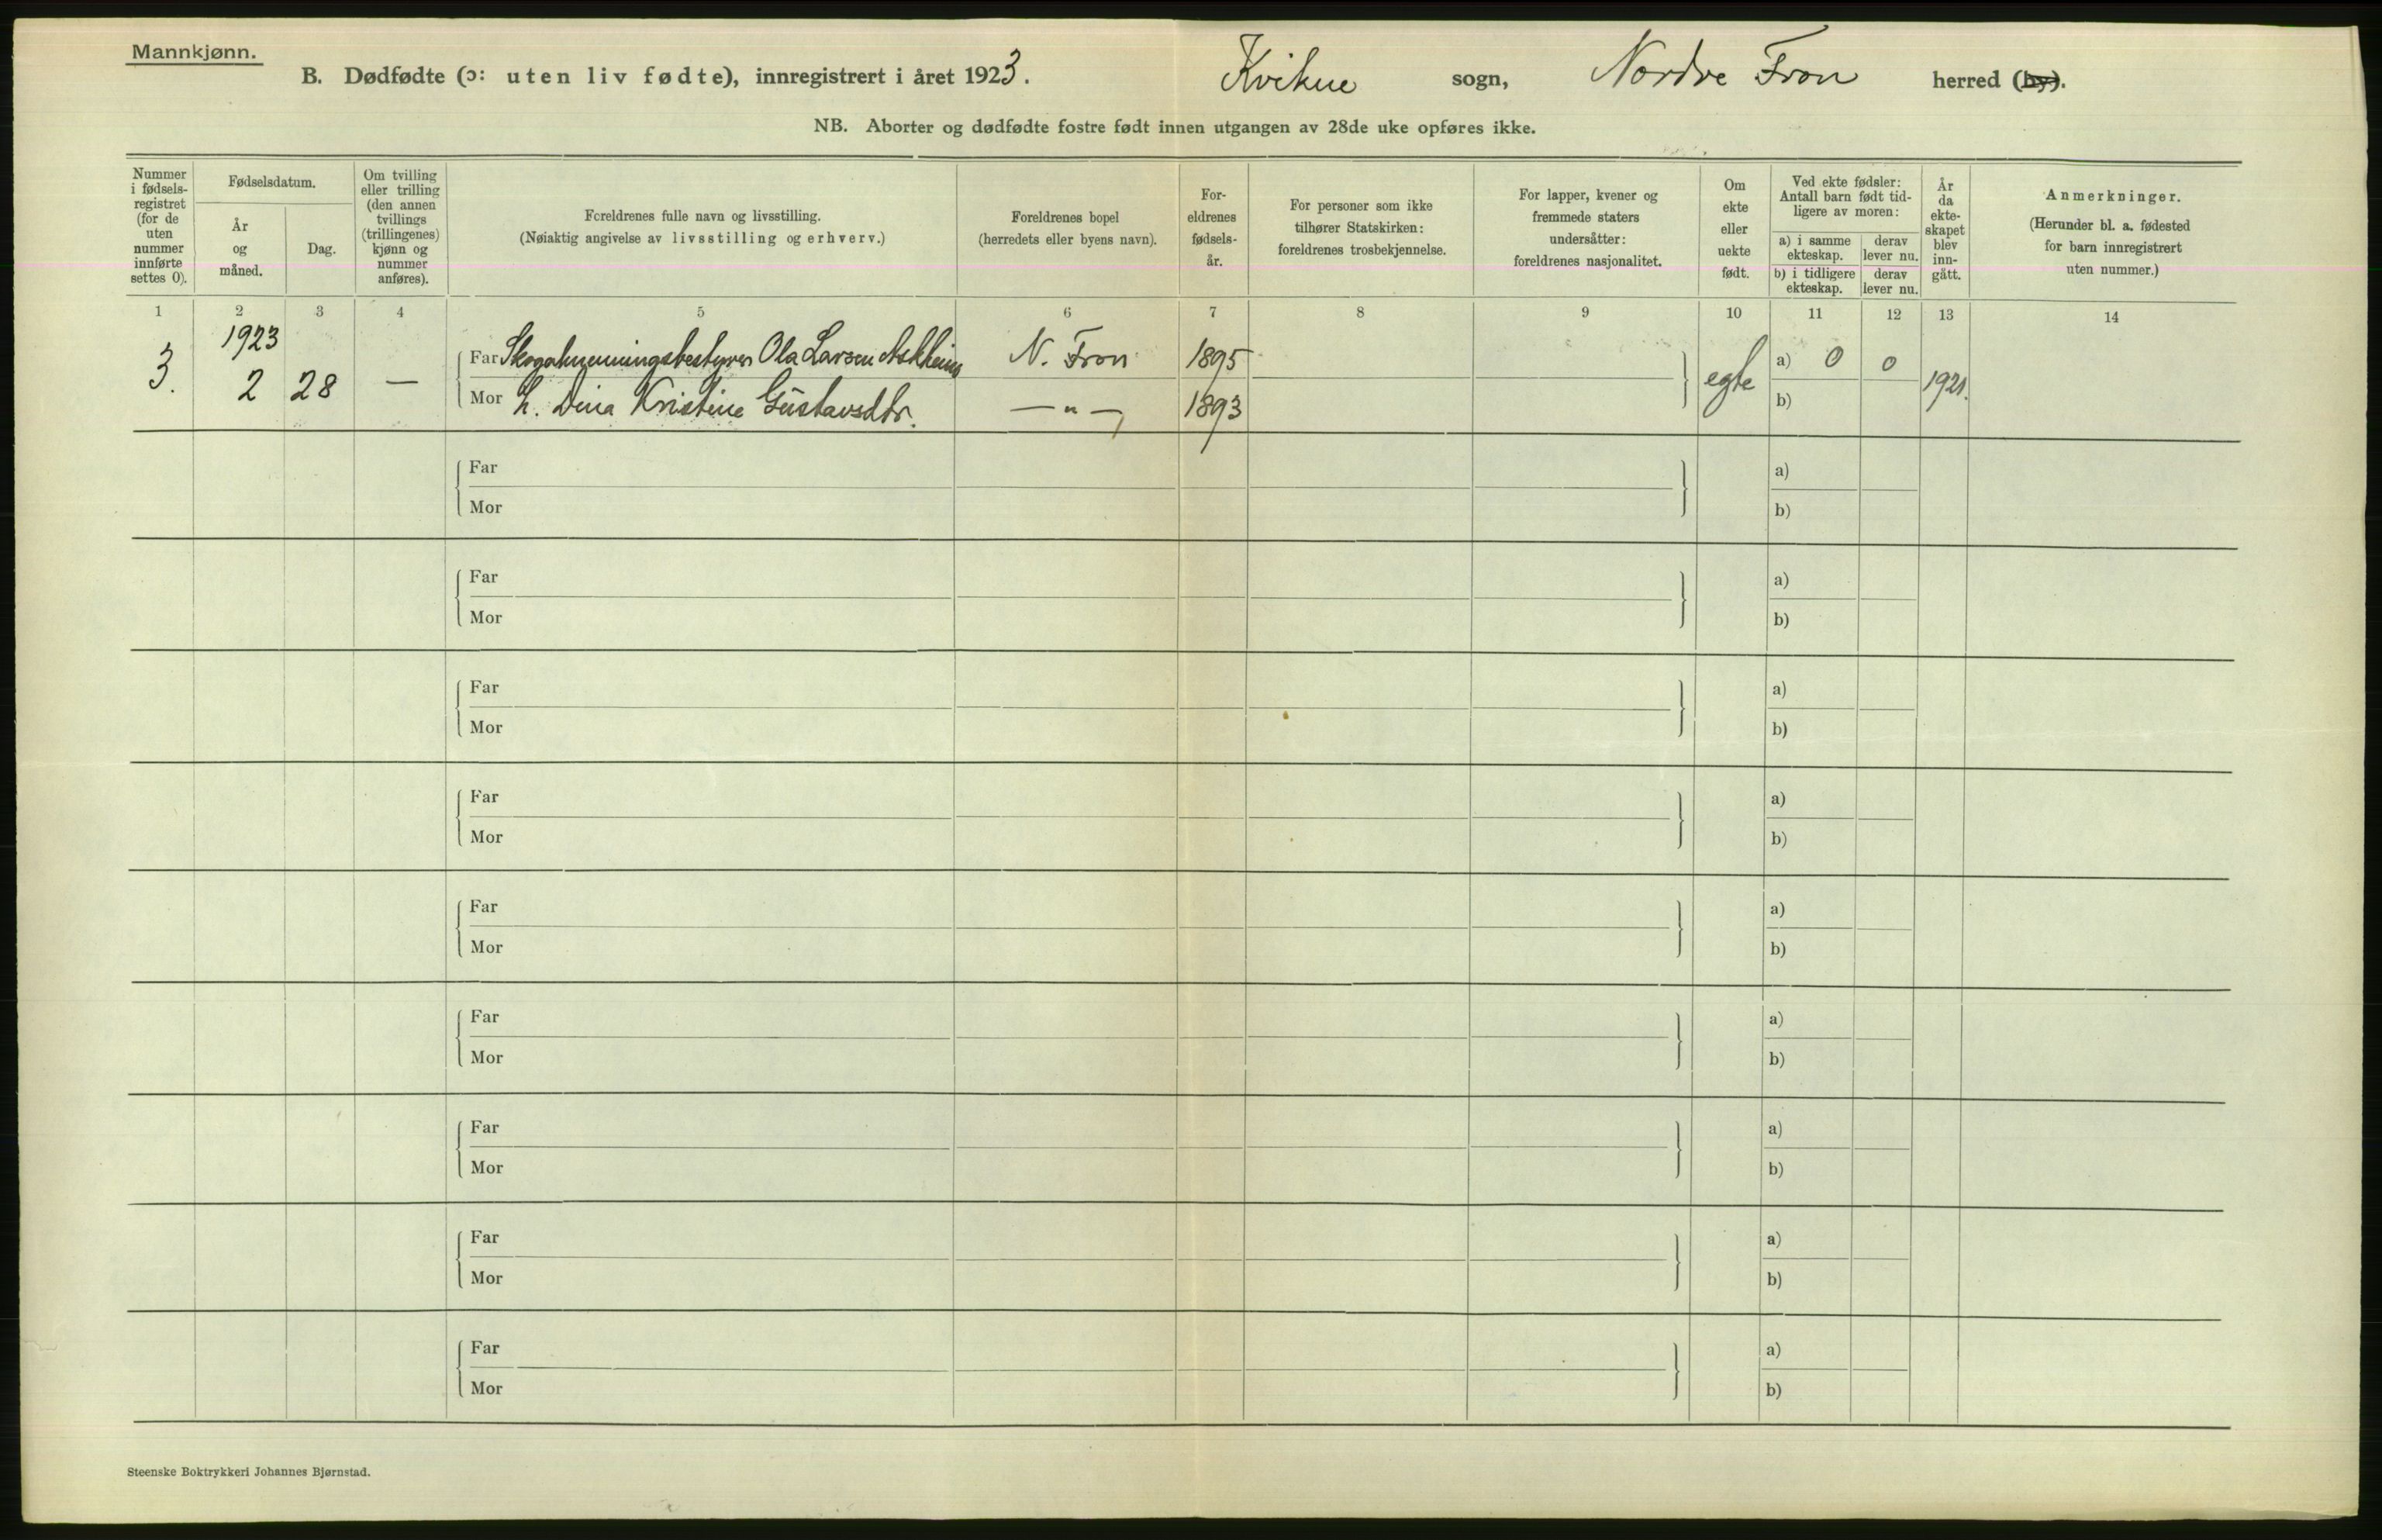 Mannkjønn.
B. Dødfødte (ɔ: uten liv fødte), innregistrert i året 1923. Kvikne sogn, Nordre Fron herred (by).
NB. Aborter og dødfødte fostre født innen utgangen av 28de uke opføres ikke.
Nummer
i fødsels-
registret
(for de
uten
nummer
innførte
settes 0).
Fødselsdatum.
År
og
måned.
Dag.
Om tvilling
eller trilling
(den annen
tvillings
(trillingenes)
kjønn og
nummer
anføres).
Foreldrenes fulle navn og livsstilling.
(Nøiaktig angivelse av livsstilling og erhverv.)
Foreldrenes bopel
(herredets eller byens navn).
For-
eldrenes
fødsels-
år.
For personer som ikke
tilhører Statskirken:
foreldrenes trosbekjennelse.
For lapper, kvener og
fremmede staters
undersåtter:
foreldrenes nasjonalitet.
Om
ekte
eller
uekte
født.
Ved ekte fødsler:
Antall barn født tid-
ligere av moren:
a) i samme
ekteskap.
derav
lever nu.
b) i tidligere
ekteskap.
derav
lever nu.
År
da
ekte-
skapet
blev
inn-
gått.
Anmerkninger.
(Herunder bl. a. fødested
for barn innregistrert
uten nummer.)
1 2 3 4 5 6 7 8 9 10 11 12 13 14
1923
3. 2 28 —
Far Ola Larsen N. Fron 1895
Mor h. Dina Kristine Gustavsdtr. — " — 1893
egte a) 0 0 1921.
b)
Far a)
Mor b)
Far a)
Mor b)
Far a)
Mor b)
Far a)
Mor b)
Far a)
Mor b)
Far a)
Mor b)
Far a)
Mor b)
Far a)
Mor b)
Far a)
Mor b)
Steenske Boktrykkeri Johannes Bjørnstad.